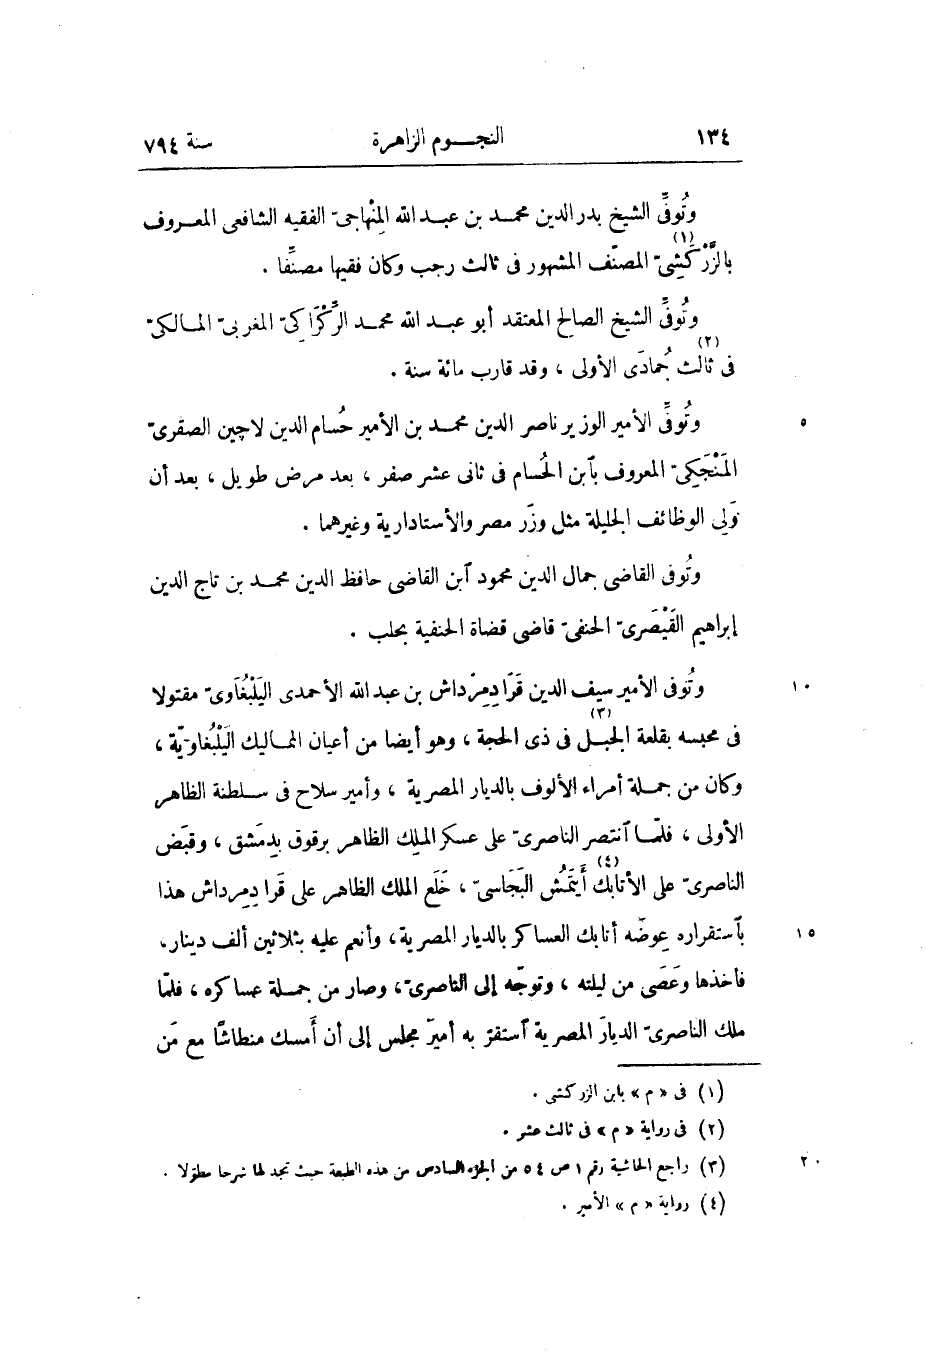 ١٣٤ النجوم الزاهرة سنة ٧٩٤
وتُوفِّى الشيخ بدر الدين محمد بن عبد الله المِنْهاجىّ الفقيه الشافعى المعروف
بالزَّرْكَشِىّ (١) المصنّف المشهور فى ثالث رجب وكان فقيها مصنِّفا .
وتُوفِّى الشيخ الصالح المعتقد أبو عبد الله محمد الرِّكْرَاكىّ المغربىّ المالكىّ
فى ثالث (٢) جُمادَى الأولى ، وقد قارب مائة سنة .
وتُوفِّى الأمير الوزير ناصر الدين محمد بن الأمير حُسام الدين لاچين الصقرىّ ٥
المَنْجَكِىّ المعروف بآبن الحُسام فى ثانى عشر صفر ، بعد مرض طويل ، بعد أن
وَلِى الوظائف الجليلة مثل وزَر مصر والأستادارية وغيرهما .
وتُوفى القاضى جمال الدين محمود آبن القاضى حافظ الدين محمد بن تاج الدين
إبراهيم القَيْصَرىّ الحنفىّ قاضى قضاة الحنفية بحلب .
وتُوفى الأمير سيف الدين قَرَا دِمِرْداش بن عبد الله الأحمدى اليَلْبُغَاوىّ مقتولا ١٠
فى محبسه بقلعة الجبل (٣) فى ذى الحجة ، وهو أيضا من أعيان المماليك اليَلْبُغاويّة ،
وكان من جملة أمراء الألوف بالديار المصرية ، وأمير سلاح فى سلطنة الظاهر
الأولى ، فلمّا آنتصر الناصرىّ على عسكر الملك الظاهر برقوق بِدِمَشق ، وقبَض
الناصرىّ على الأتابك (٤) أَيْتَمُش البَجَاسىّ ، خَلَع الملك الظاهر على قَرا دِمِرداش هذا
بآستقراره عِوضَه أتابك العساكر بالديار المصرية، وأنعم عليه بثلاثين ألف دينار، ١٥
فأخذها وعَصَى من ليلته ، وتوجّه إلى الناصرىّ، وصار من جملة عساكره ، فلمّا
ملك الناصرىّ الديارَ المصرية آستقرّ به أميرَ مجلس إلى أن أَمسك منطاشًا مع مَن
(١) فى « م » بابن الزركشى .
(٢) فى رواية « م » فى ثالث عشر .
(٣) راجع الحاشية رقم ١ ص ٥٤ من الجزء السادس من هذه الطبعة حيث تجد لها شرحا مطوّلا . ٢٠
(٤) رواية « م » الأمير .